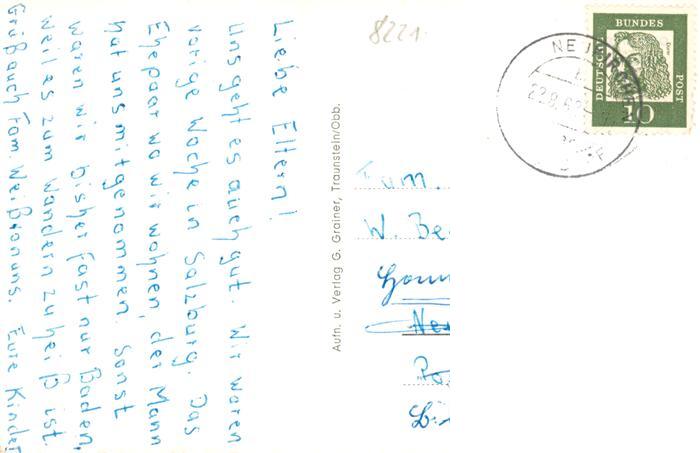 Liebe Eltern!
Uns geht es auch gut. Wir waren
vorige Woche in Salzburg. Das
Ehepaar wo wir wohnen, der Mann
hat uns mitgenommen. Sonst
waren wir bisher fast nur Baden,
weil es zum Wandern zu heiß ist.
Grüßt auch Fam. Weiß von uns. Eure Kinder
8221
Aufn. u. Verlag G. Grainer, Traunstein/Obb.
Fam.
W. Be
DEUTSCHE
BUNDES
POST
10